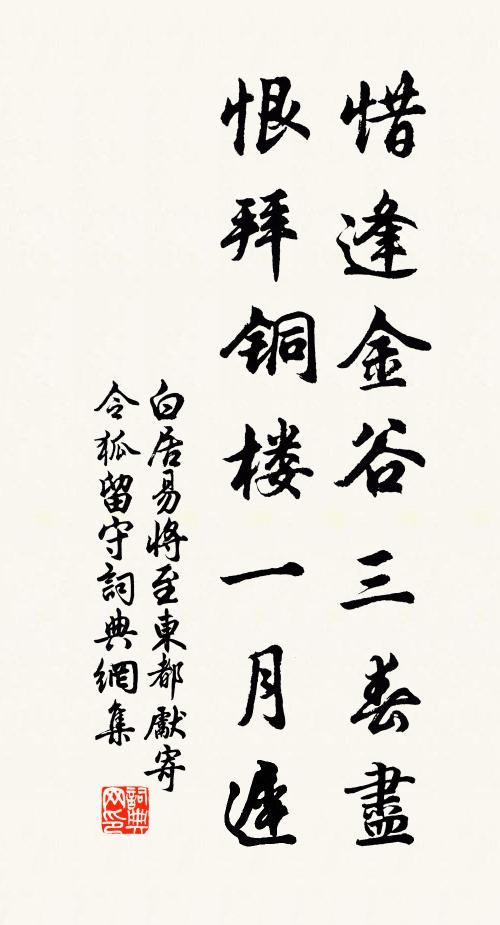 惜逢金谷三春盡
恨拜铜楼一月遲
白居易將至東都獻寄
令狐留守詞典網集
詞典网印